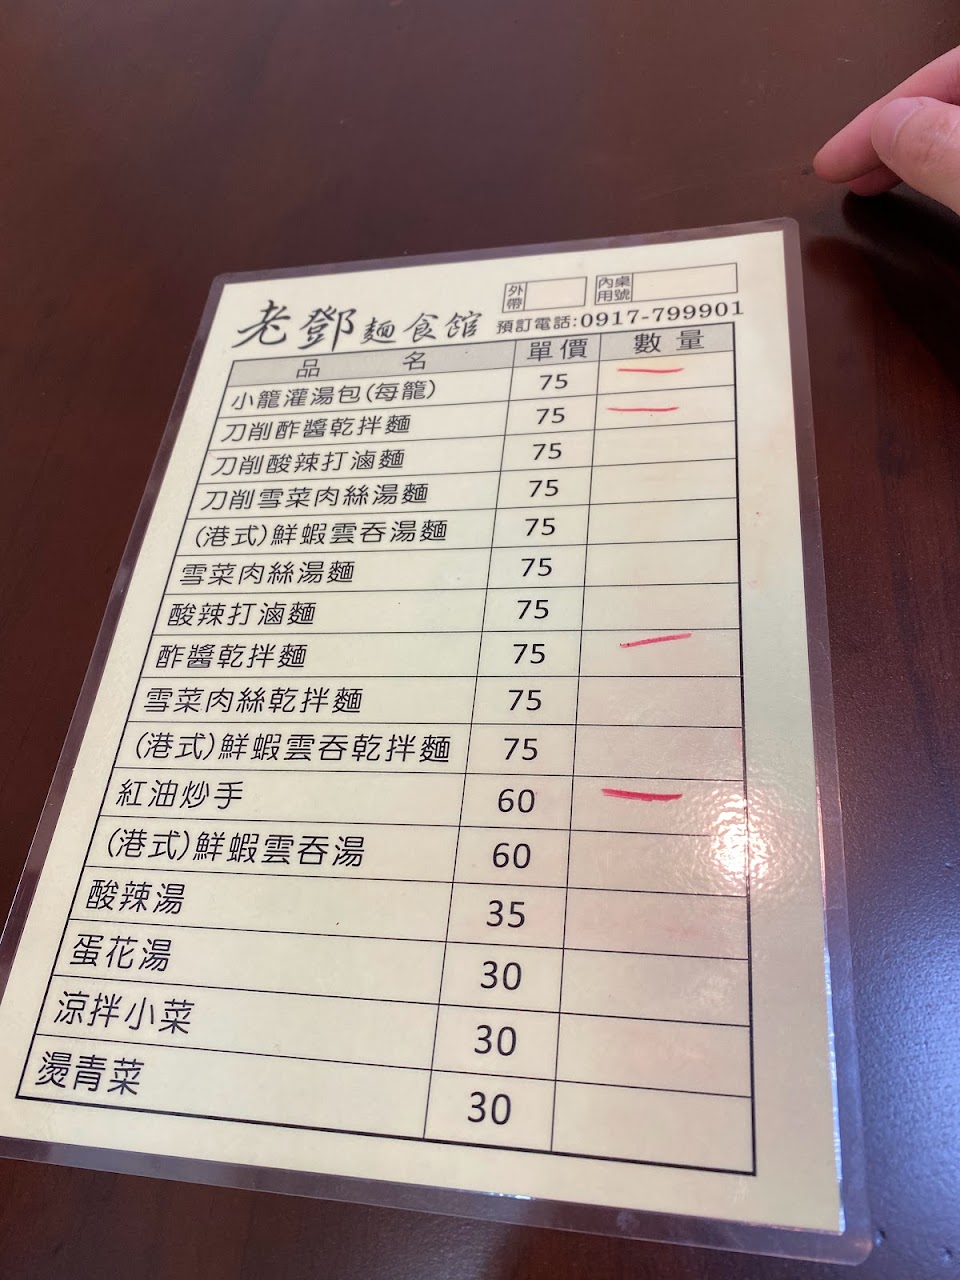 外帶
內用 桌號
老鄧麵食館 預訂電話:0917-799901
品名 單價 數量
小籠灌湯包(每籠) 75 一
刀削酢醬乾拌麵 75 一
刀削酸辣打滷麵 75
刀削雪菜肉絲湯麵 75
(港式)鮮蝦雲吞湯麵 75
雪菜肉絲湯麵 75
酸辣打滷麵 75
酢醬乾拌麵 75 一
雪菜肉絲乾拌麵 75
(港式)鮮蝦雲吞乾拌麵 75
紅油炒手 60 一
(港式)鮮蝦雲吞湯 60
酸辣湯 35
蛋花湯 30
涼拌小菜 30
燙青菜 30